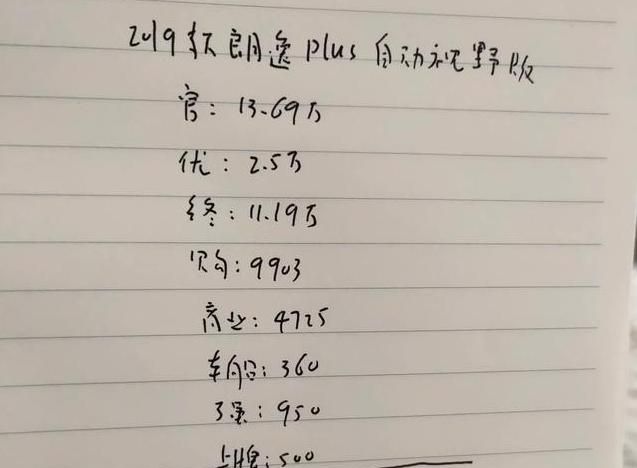 2019款朗逸plus自动视野版
官：13.69万
优：2.5万
终：11.19万
购：9903
商业：4725
车船：360
强：950
上牌：500